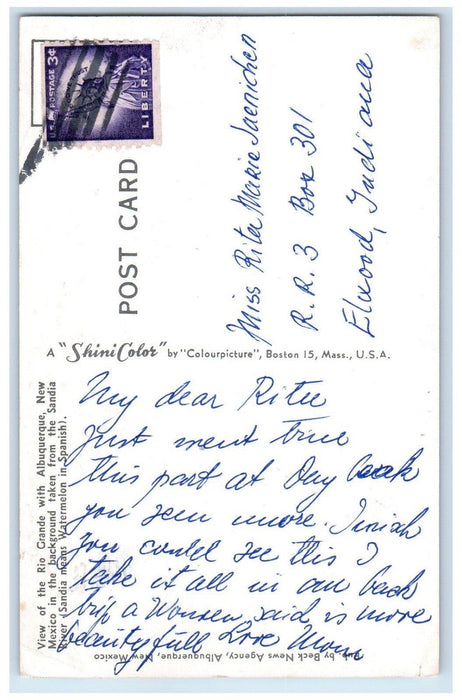 U.S. POSTAGE 3¢
LIBERTY
POST CARD
Miss Rita Marie Jaenichen
R.R. 3 Box 301
Elwood, Indiana
A "ShiniColor" by "Colourpicture", Boston 15, Mass., U.S.A.
View of the Rio Grande with Albuquerque, New
Mexico in the background taken from the Sandia
River (Sandia means Watermelon in Spanish).
My dear Rita
Just went
this part at Day
you seen more.
you could see this I
take it all in our back
trip a Women said is more
beautyfull Love Mom
Pub. by Beck News Agency, Albuquerque, New Mexico